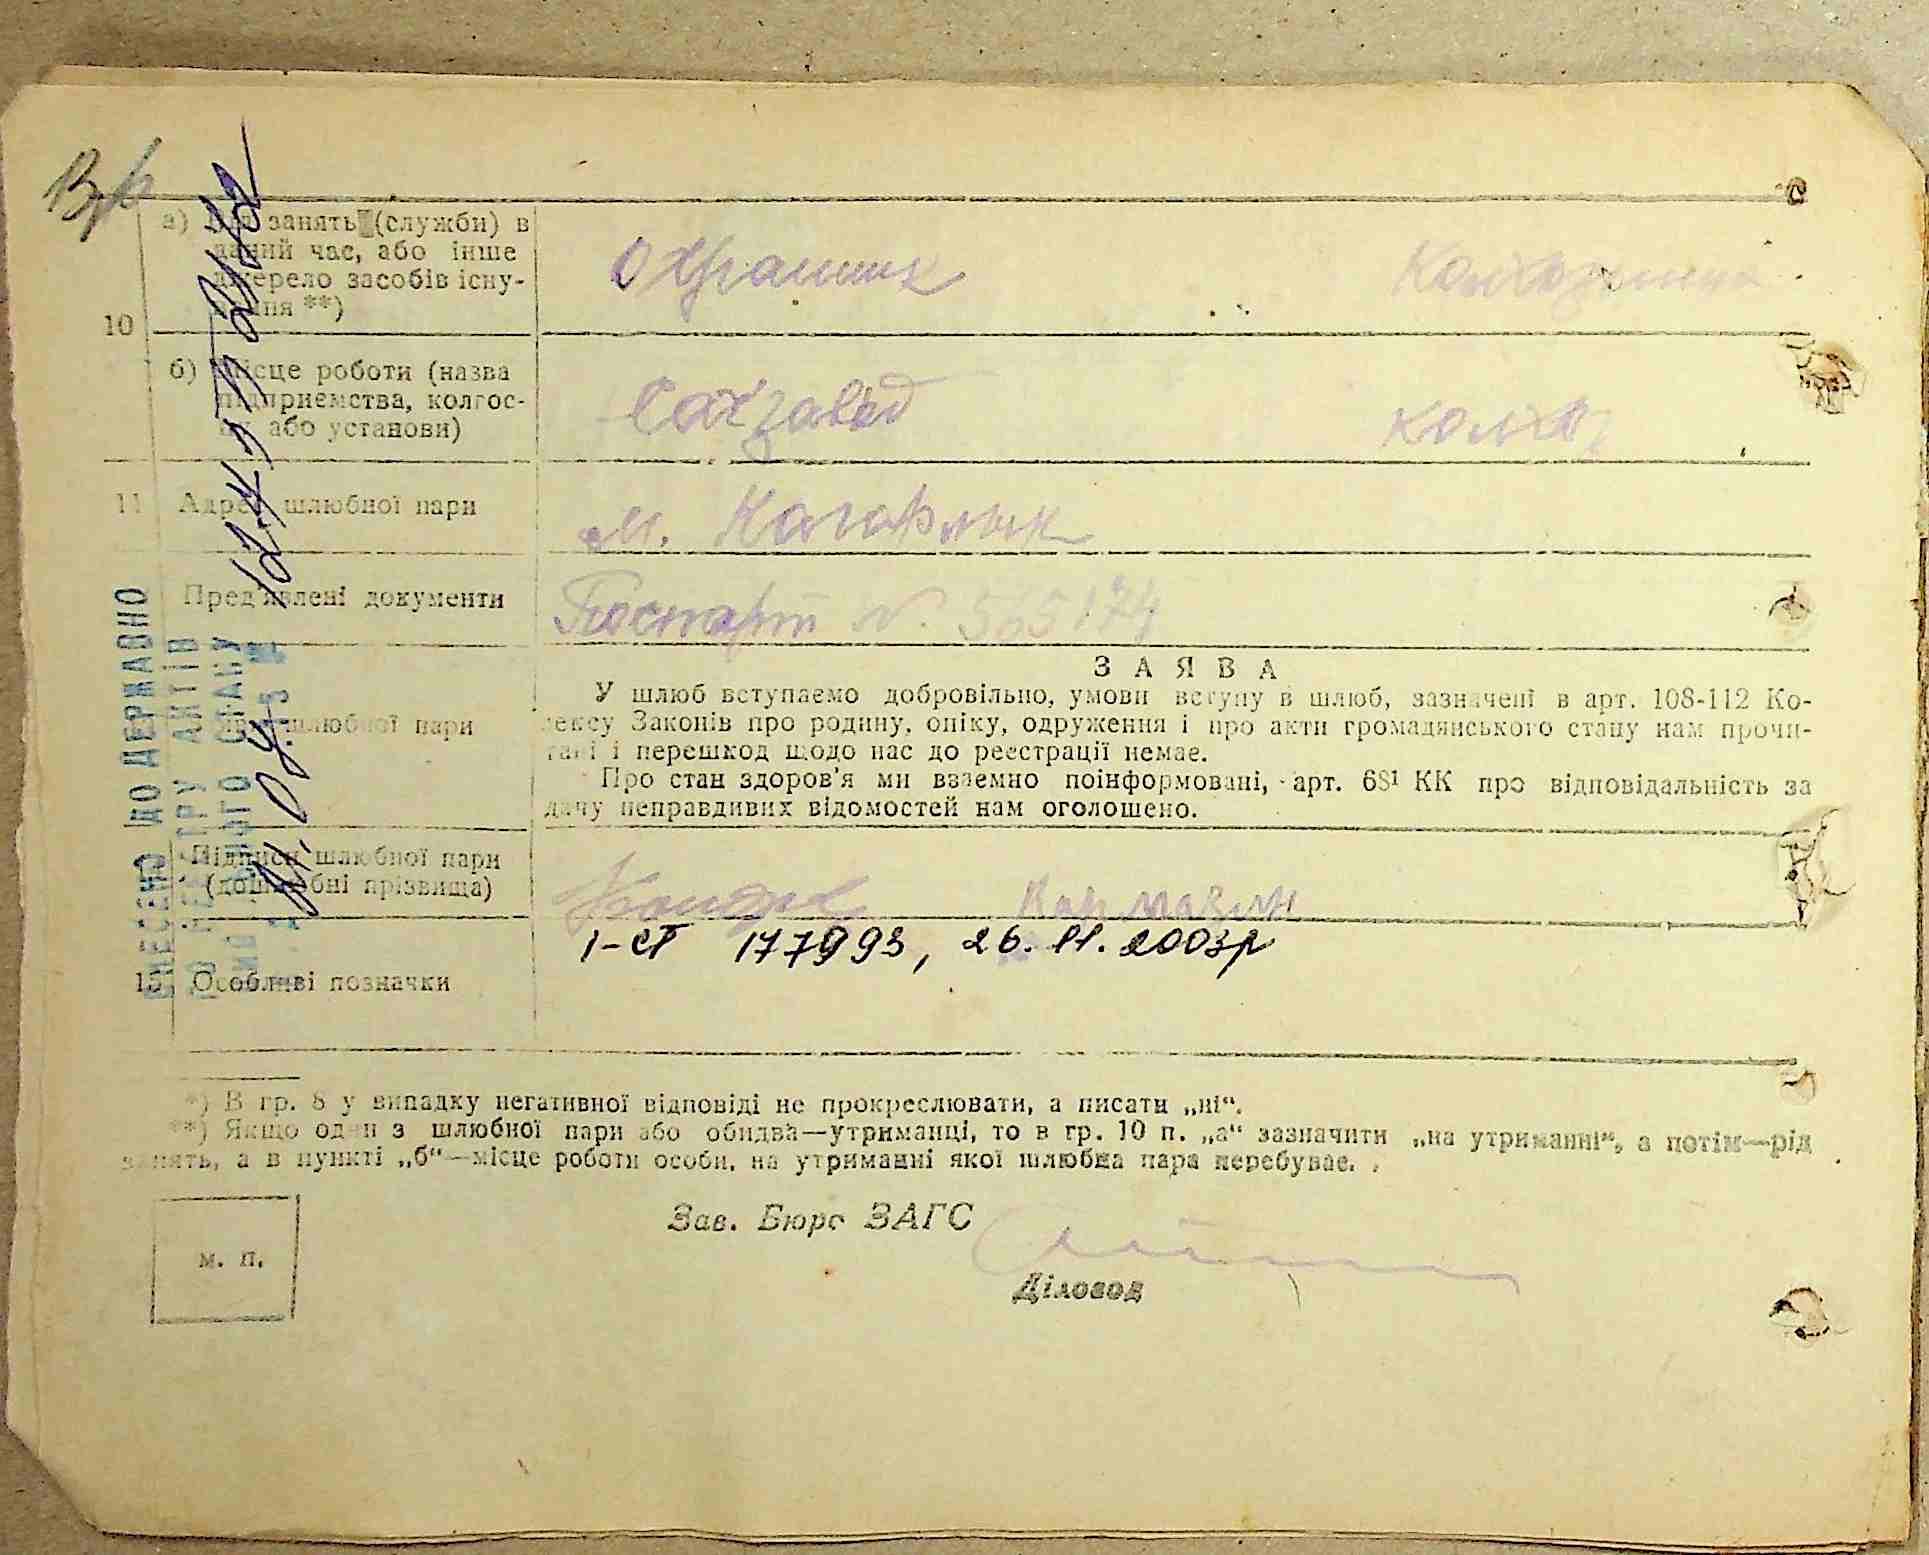 а) Рід занять (служби) в
даний час, або інше
джерело засобів існу-
вання **)
Охранник
Колгоспниця
10
б) Місце роботи (назва
підприємства, колгос-
пу або установи)
Сахзавод
колгосп
11 Адреса шлюбної пари
м. Кагарлык
Пред'явлені документи
Паспорт N. 565174
ЗАЯВА
У шлюб вступаємо добровільно, умови вступу в шлюб, зазначені в арт. 108-112 Ко-
дексу Законів про родину, опіку, одруження і про акти громадянського стану нам прочи-
тані і перешкод щодо нас до реєстрації немає.
Про стан здоров'я ми взаємно поінформовані, арт. 68¹ КК про відповідальність за
дачу неправдивих відомостей нам оголошено.
шлюбної пари
Підписи шлюбної пари
(дошлюбні прізвища)
Кармазин
1-СГ 177993, 26.11.2003р
15 Особливі позначки
*) В гр. 8 у випадку негативної відповіді не прокреслювати, а писати „ні“.
**) Якщо один з шлюбної пари або обидва—утриманці, то в гр. 10 п. „а“ зазначити „на утриманні“, а потім—рід
занять, а в пункті „б“—місце роботи особи, на утриманні якої шлюбна пара перебуває.
м. п.
Зав. Бюро ЗАГС
Діловод
ВНЕСЕНО ДО ДЕРЖАВНО
ГО РЕЄСТРУ АКТІВ
ЦИВІЛЬНОГО СТАНУ